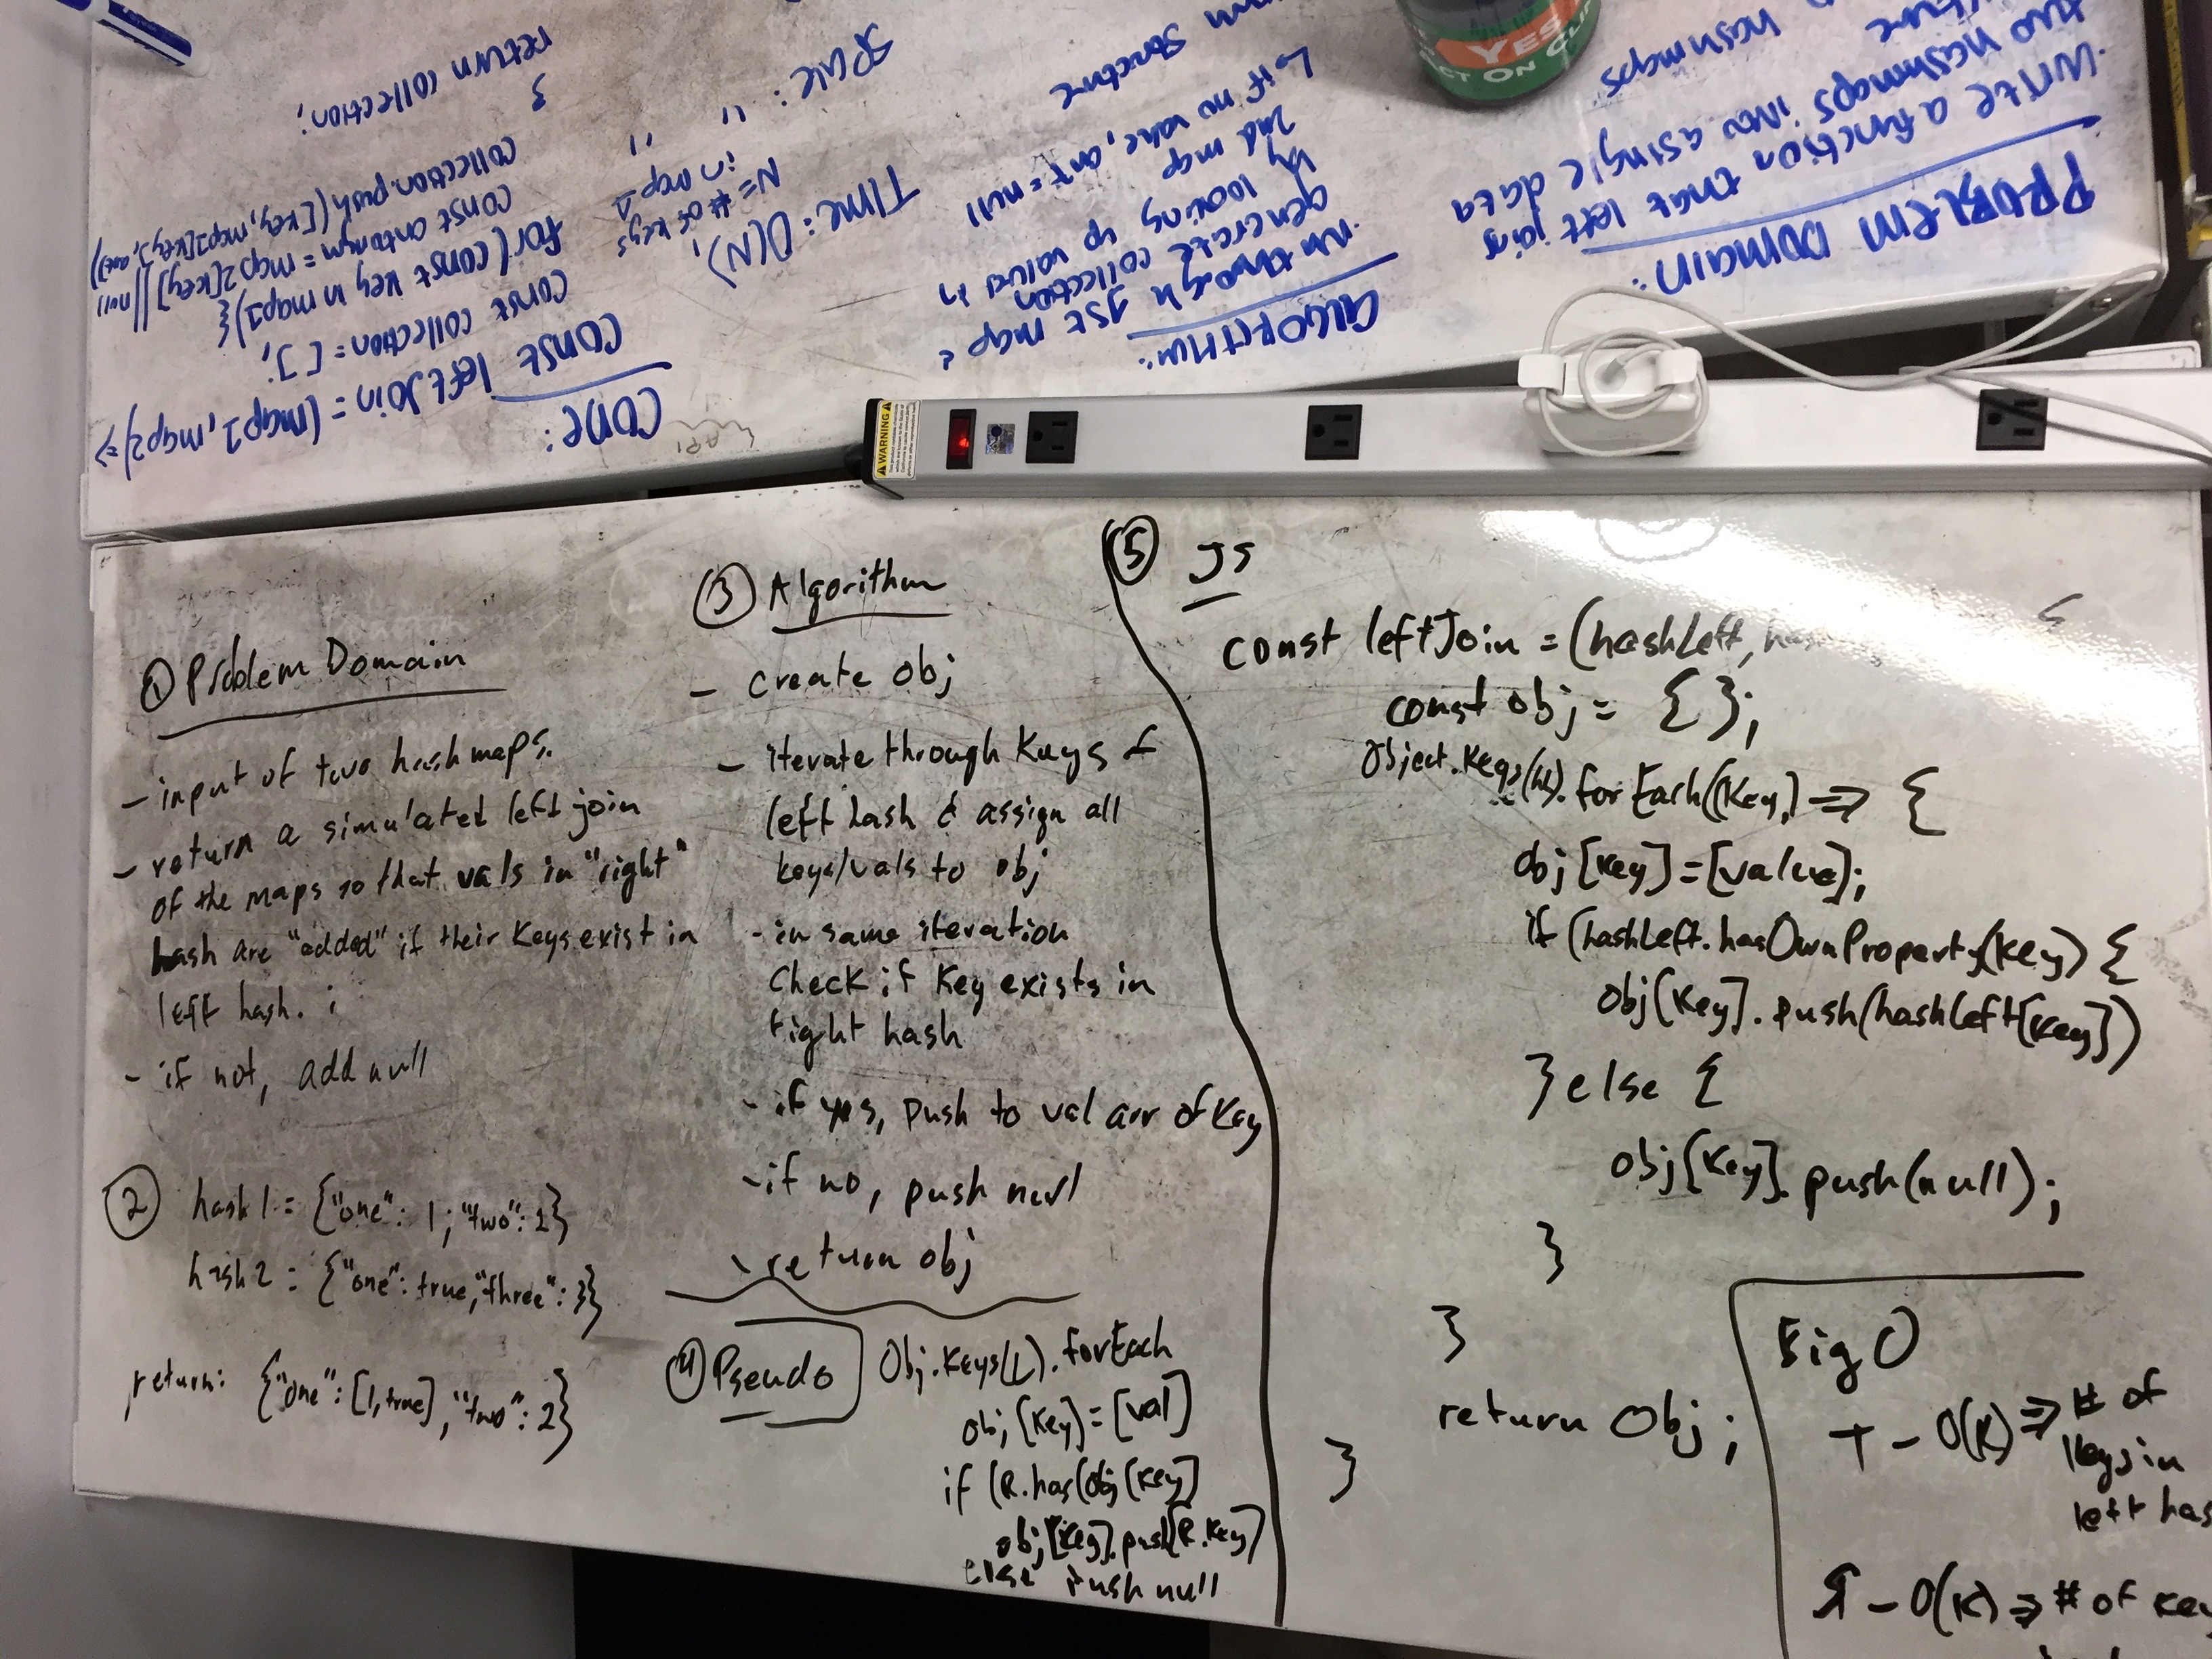 PROBLEM DOMAIN:
· Write a function that left joins
two hashmaps into a single data
hashmaps
ALGORITHM:
· run through 1st map &
generate collection
by looking up values in
2nd map
if no value, ant = null
structure
TIME: O(N),
N = # of keys
in map 1
SPACE: " "
CODE:
const leftJoin = (map1, map2) =>
const collection = [];
for (const key in map1) {
const antonym = map2[key] || null
collection.push([key, map1[key], ant])
}
return collection;
YES
ACT ON CL
WARNING
① Problem Domain
- input of two hash maps.
- return a simulated left join
of the maps so that vals in "right"
hash are "added" if their keys exist in
left hash.
- if not, add null
② hash1 = {"one": 1, "two": 2}
hash2 = {"one": true, "three": 3}
return: {"one": [1, true], "two": 2}
③ Algorithm
- create obj
- iterate through keys of
left hash & assign all
keys/vals to obj
- in same iteration
check if key exists in
right hash
- if yes, push to val arr of key
- if no, push null
- return obj
④ Pseudo
Obj.keys(L).forEach
obj[key] = [val]
if (R.has(obj[key]
obj[key].push(R.key)
else push null
⑤ JS
const leftJoin = (hashLeft, has {
const obj = {};
Object.keys(hl).forEach((key) => {
obj[key] = [value];
if (hashLeft.hasOwnProperty(key) {
obj[key].push(hashLeft[key])
} else {
obj[key].push(null);
}
}
return obj;
}
Big O
T - O(K) => # of
keys in
left has
S - O(K) => # of key